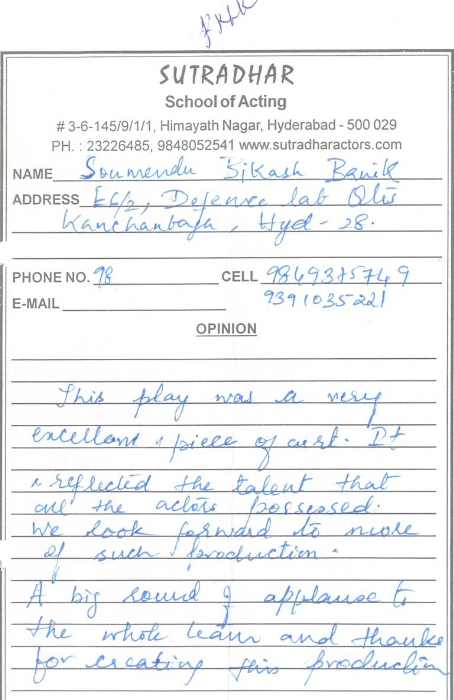 SUTRADHAR
School of Acting
# 3-6-145/9/1/1, Himayath Nagar, Hyderabad - 500 029
PH. : 23226485, 9848052541 www.sutradharactors.com
NAME Soumendu Bikash Banik
ADDRESS E6/2, Defence lab Qtrs
Kanchanbagh, Hyd - 28.
PHONE NO. 98 CELL 9849385749
E-MAIL 9391035221
OPINION
This play was a very
excellent piece of art. It
reflected the talent that
all the actors possessed.
We look forward to more
of such production.
A big round of applause to
the whole team and thanks
for creating this production